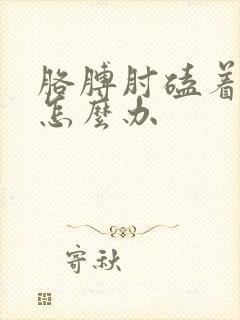 胳膊肘磕着
怎麼办
寄秋